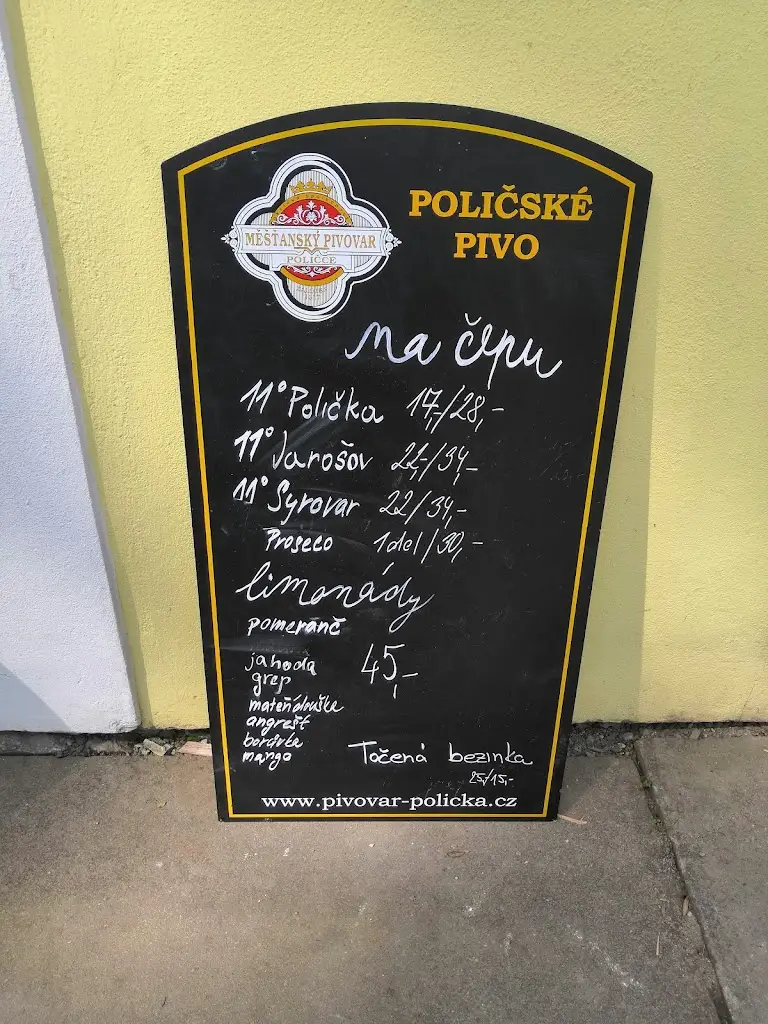 MĚŠŤANSKÝ PIVOVAR
POLIČCE
POLIČSKÉ
PIVO
na čepu
11° Polička 17,-/28,-
11° Jarošov 22,-/34,-
11° Syrovar 22/34,-
Proseco 1del/30,-
limonády
pomeranč
jahoda 45,-
grep
mateřídouška
angrešt
borůvka
mango
Točená bezinka
25,/15,-
www.pivovar-policka.cz